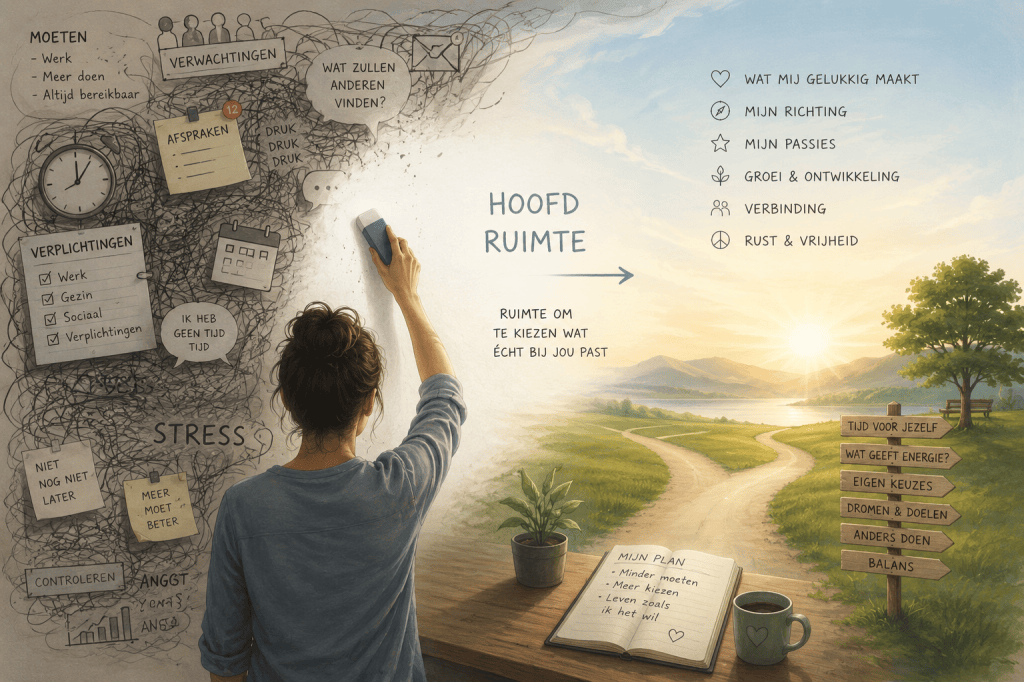 MOETEN
- Werk
- Meer doen
- Altijd bereikbaar
VERWACHTINGEN
WAT ZULLEN
ANDEREN
VINDEN?
12
AFSPRAKEN
DRUK
DRUK
DRUK
VERPLICHTINGEN
Werk
Gezin
Sociaal
Verplichtingen
IK HEB
GEEN TIJD
TIJD
STRESS
NIET
NOG NIET
LATER
MEER
MOET
BETER
CONTROLEREN
ANGGT
HOOFD
RUIMTE
RUIMTE OM
TE KIEZEN WAT
ÉCHT BIJ JOU PAST
WAT MIJ GELUKKIG MAAKT
MIJN RICHTING
MIJN PASSIES
GROEI & ONTWIKKELING
VERBINDING
RUST & VRIJHEID
TIJD VOOR JEZELF
WAT GEEFT ENERGIE?
EIGEN KEUZES
DROMEN & DOELEN
ANDERS DOEN
BALANS
MIJN PLAN
- Minder moeten
- Meer kiezen
- Leven zoals
ik het wil